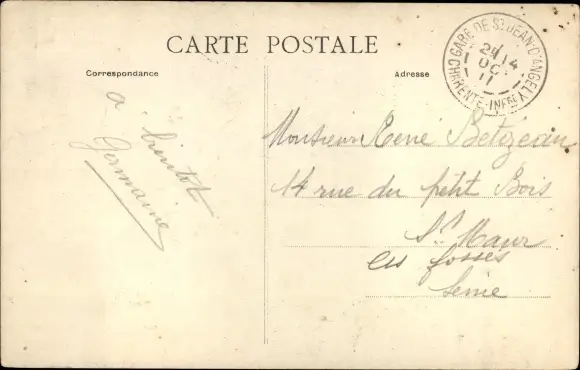 CARTE POSTALE
Correspondance
Adresse
GARE DE ST JEAN-D'ANGELY
CHARENTE-INFRE
24 14
OC.
11
a bientot
Germaine
Monsieur René Betizeau
14 rue du petit Bois
St. Maur
les fossés
Seine